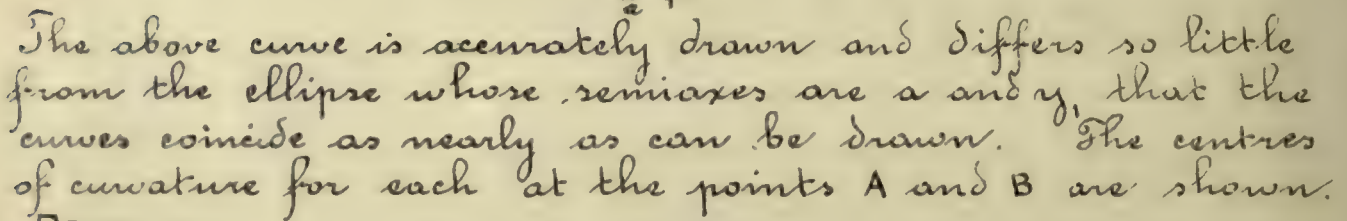 The above curve is accurately drawn and differs so little
from the ellipse whose semiaxes are a and y, that the
curves coincide as nearly as can be drawn. The centres
of curvature for each at the points A and B are shown.